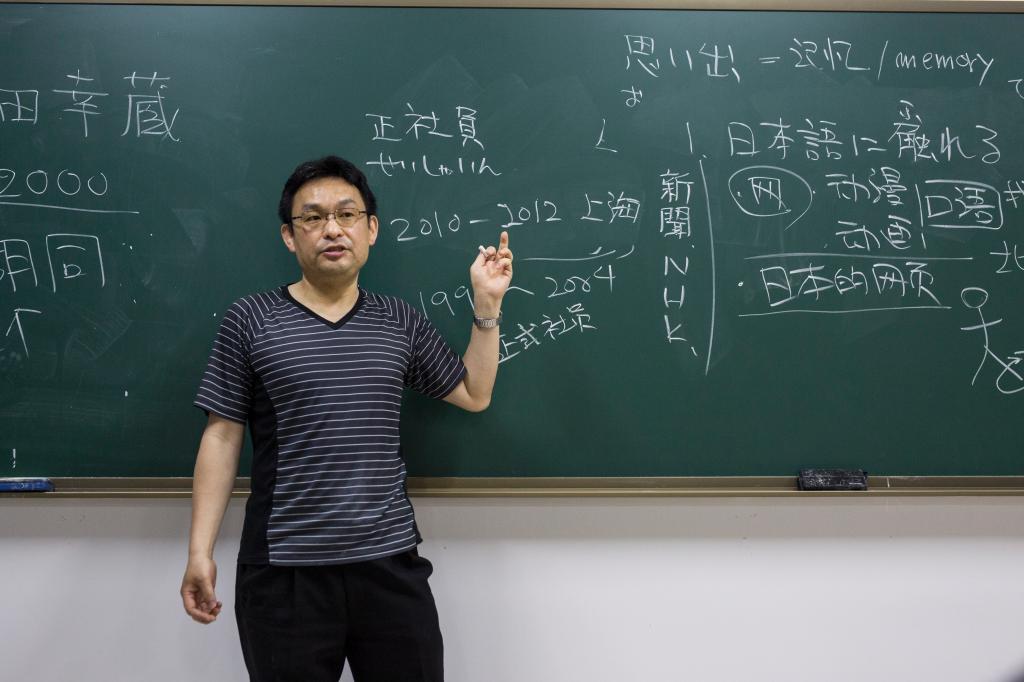 田幸蔵
2000
期间
个
正社員
せいしゃいん
2010-2012 上海
199 ~ 2004
正式社员
思い出 = 记忆/memory
お
く
1. 日本語に触れる
新聞、NHK、
网
动漫
动画
口语
日本的网页